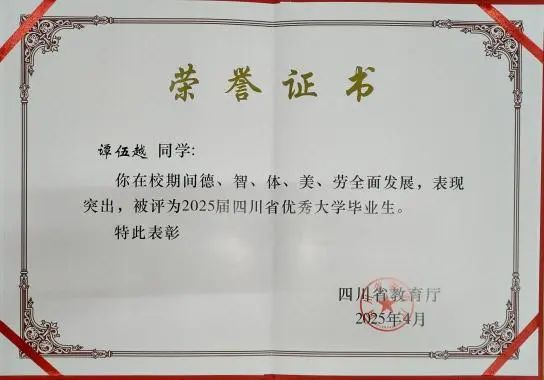 荣誉证书
谭伍越 同学:
你在校期间德、智、体、美、劳全面发展，表现
突出，被评为2025届四川省优秀大学毕业生。
特此表彰
四川省教育厅
2025年4月